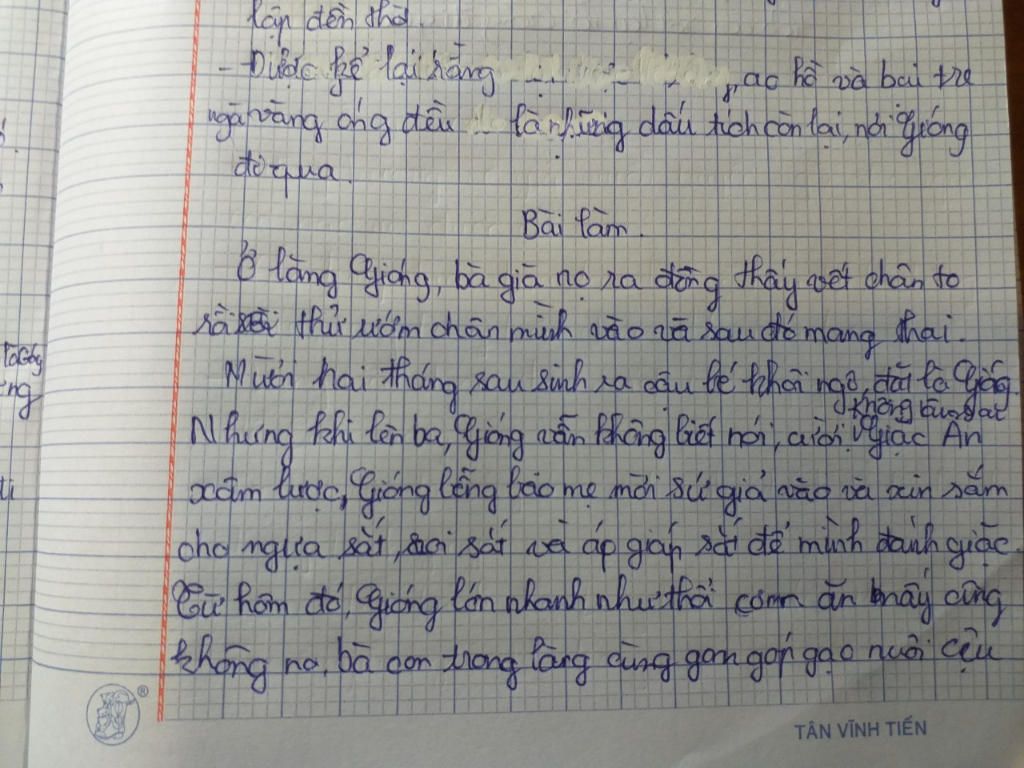 lập đền thờ.
- Được kể lại rằng ao hồ và bụi tre
ngà vàng óng đều là những dấu tích còn lại, nơi Gióng
đi qua.
Bài làm.
Ở làng Gióng, bà già nọ ra đồng thấy vết chân to
rồi thử ướm chân mình vào và sau đó mang thai.
Mười hai tháng sau sinh ra cậu bé khôi ngô, là Gióng.
không
Nhưng khi lên ba, Gióng vẫn không biết nói, cười. Giặc Ân
xâm lược, Gióng bảo mẹ mời sứ giả vào và xin sắm
cho ngựa sắt, roi sắt và áp giáp sắt để mình đánh giặc.
Từ hôm đó, Gióng lớn nhanh như thổi cơm ăn mấy cũng
không no, bà con trong làng cùng gom góp gạo nuôi cậu
ng
®
TÂN VĨNH TIẾN